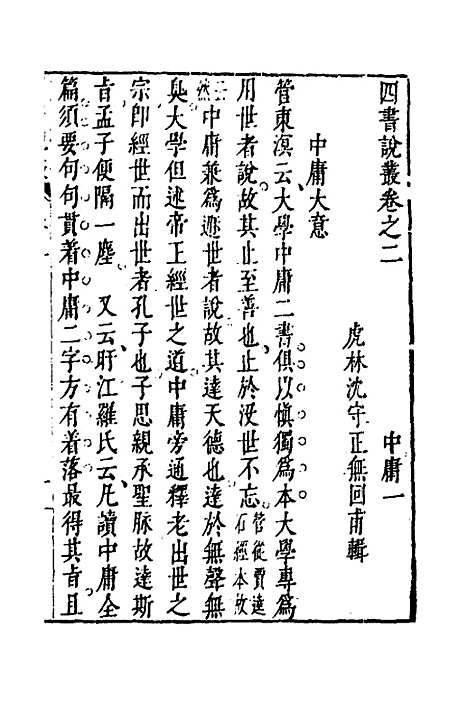 四書說叢卷之二
中庸一
虎林沈守正無回甫輯
中庸大意
管東溟云大學中庸二書俱以慎獨爲本大學專爲
用世者說故其止至善也止於没世不忘管從賈逵石經本故
云然中庸兼爲遯世者說故其達天德也達於無聲無
臭大學但述帝王經世之道中庸旁通釋老出世之
宗即經世而出世者孔子也子思親承聖脉故達斯
旨孟子便隔一塵又云盱江羅氏云凡讀中庸全
篇須要句句貫着中庸二字方有着落最得其旨且